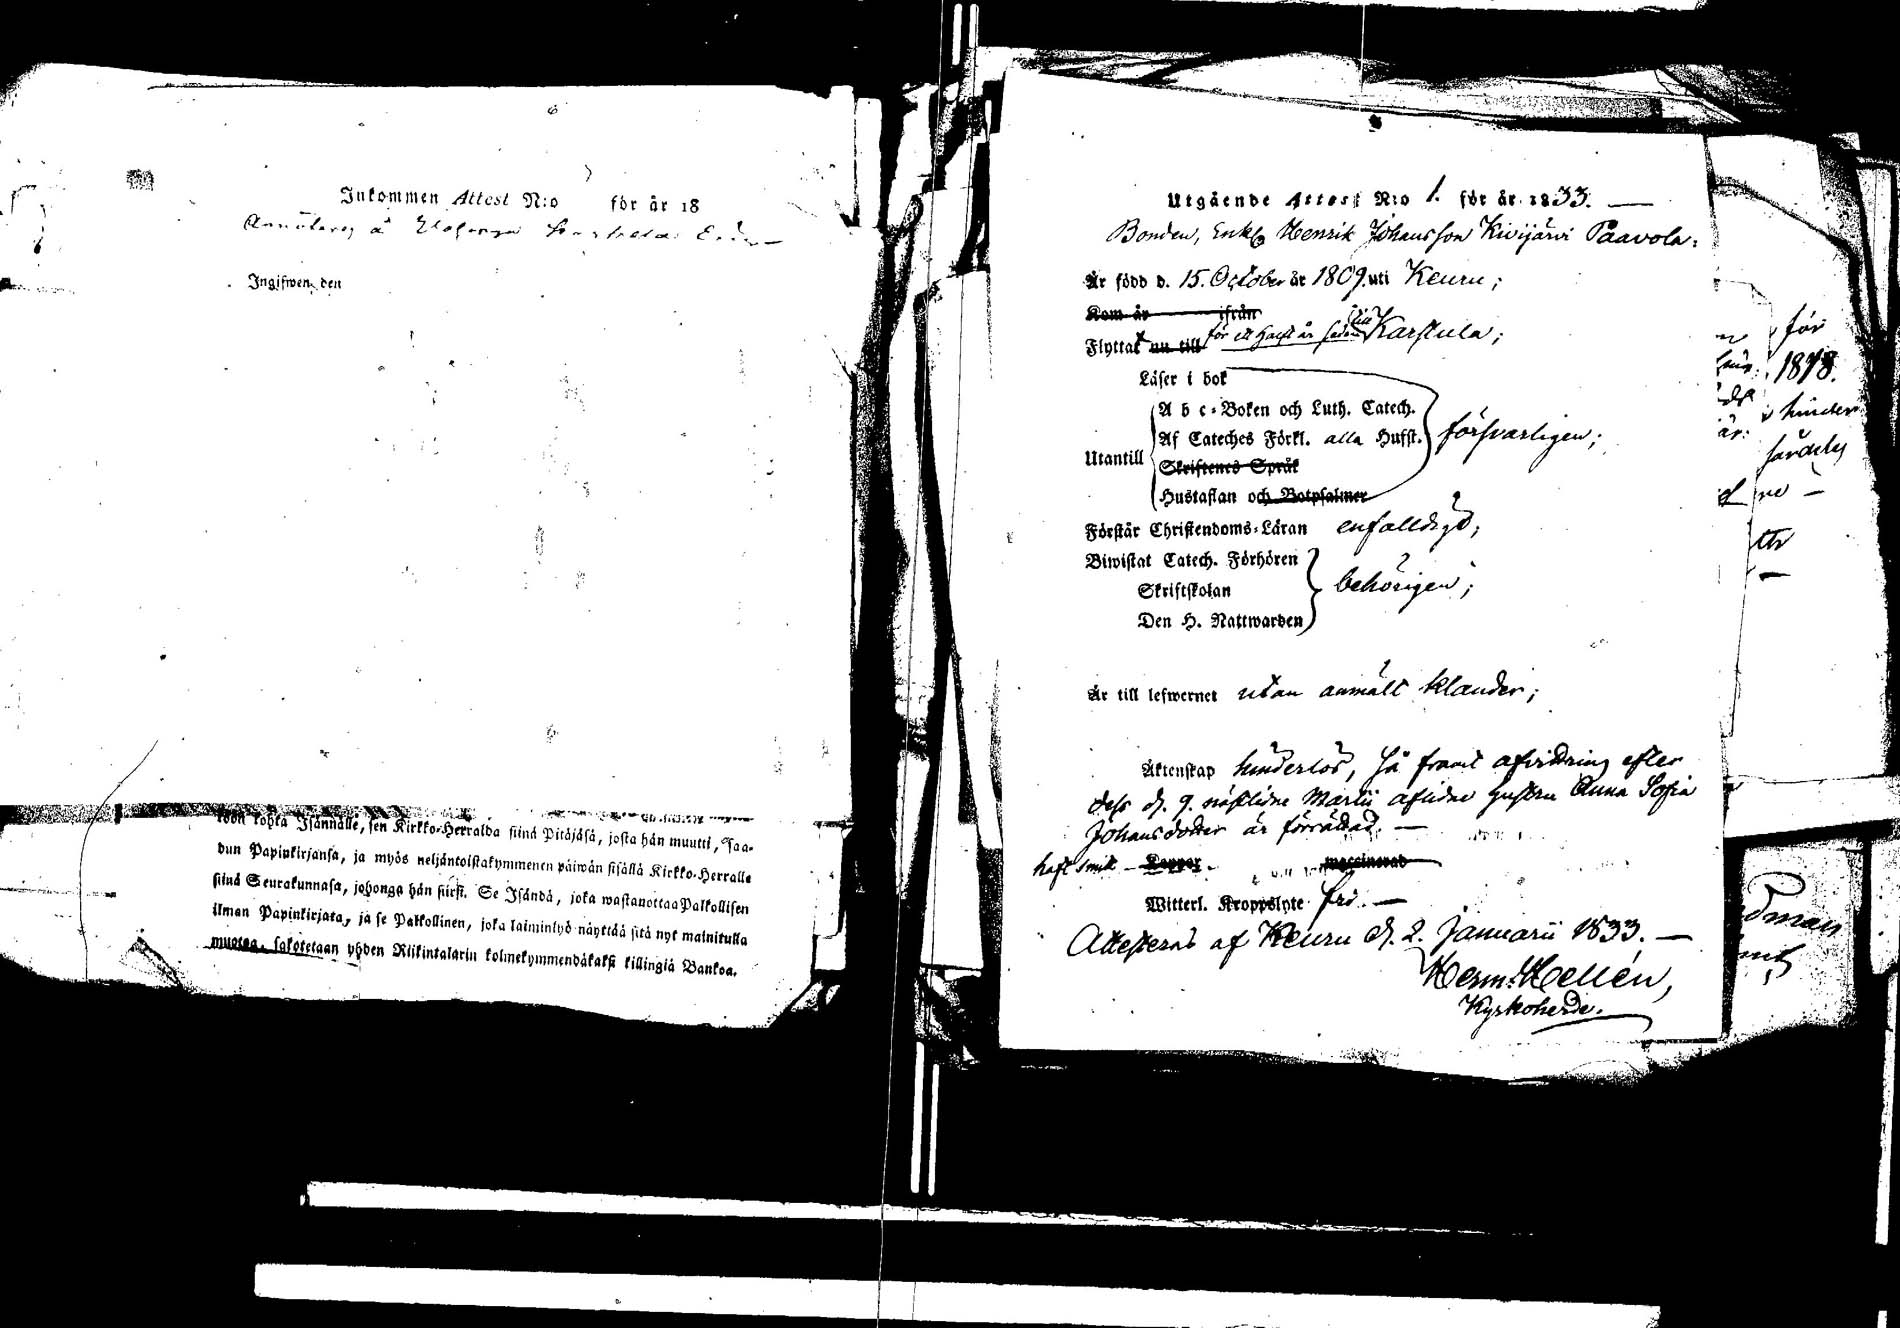 Inkommen Attest N:o för år 18
Ingifwen, den
töön kohta Isännälle, sen Kirkko-Herralda siinä Pitäjäsä, josta hän muutti, saa-
dun Papinkirjansa, ja myös neljäntoistakymmenen päiwän sisällä Kirkko-Herralle
siinä Seurakunnasa, johonga hän siirst. Se Isändä, joka wastanottaa Palkollisen
ilman Papinkirjata, ja se Palkollinen, joka laiminlyö näyttää sitä nyt mainitulla
muotoa, sakotetaan yhden Riikintalarin kolmekymmendäkaksi killingiä Bankoa.
Utgående Attest N:o 1. för år 1833.
Bonden, Enkl. Henrik Johansson Kivijärvi Paavola:
Är född d. 15. October år 1809. uti Keuru;
Kom år ifrån
Flyttat nu till för ett halft år sedan till Karstula;
Läser i bok
A b c-Boken och Luth. Catech.
Af Cateches Förkl. alla Hufst. försvarligen;
Utantill
Skriftenes Språk
Hustaflan och Botpsalmer
Förstår Christendoms-Läran enfalldigt;
Biwistat Catech. Förhören
Skriftskolan behörigen;
Den H. Nattwarden
Är till lefwernet utan anmält klander;
Äktenskap hinderlös, så framt afvittring efter
dess d. 9. nästlidne Martii aflidne hustru Anna Sofia
Johansdotter är förrättad. —
haft Smit- Koppor. waccinerad
Witterl. Kroppslyte fri. —
Attesterad af Keuru d. 2. Januarii 1833. —
Herm: Hellén,
Kyrkoherde.
för
1818.
hinder
särdeles